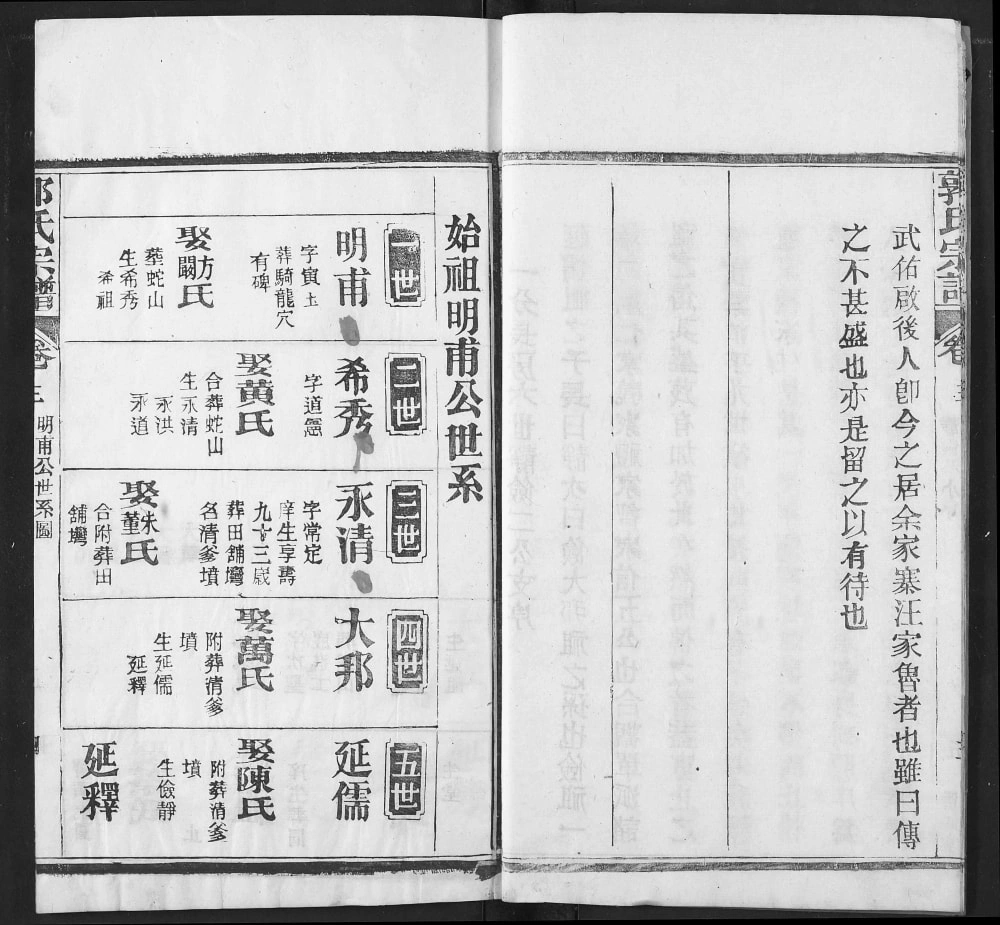 郭氏宗譜
卷三
武佑啟後人卽今之居余家寨汪家魯者也雖曰傳
之不甚盛也亦是留之以有待也
始祖明甫公世系
一世
明甫
字寅土
葬騎龍穴
有碑
娶方闞氏
葬蛇山
生希秀
希祖
二世
希秀
字道
娶黃氏
合葬蛇山
生永清
永洪
永道
三世
永清
字常定
庠生享壽
九十三歲
葬田舖灣
名清爹墳
娶朱董氏
合附葬田
舖灣
四世
大邦
娶萬氏
附葬清爹
墳
生延儒
延釋
五世
延儒
娶陳氏
附葬清爹
墳
生儉靜
延釋
郭氏宗譜
卷三
明甫公世系圖